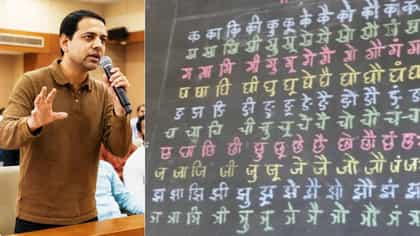 क का कि की कु कू के कै को कौ कं
ख खा खि खी खु खू खे खै खो खौ खं
ग गा गि गी गु गू गे गै गो गौ गं
घ घा घि घी घु घू घे घै घो घौ घं
ङ ङा ङि ङी ङु ङू ङे ङै ङो ङौ ङं
च चा चि ची चु चू चे चै चो चौ चं
छ छा छि छी छु छू छे छै छो छौ छं
ज जा जि जी जु जू जे जै जो जौ जं
झ झा झि झी झु झू झे झै झो झौ झं